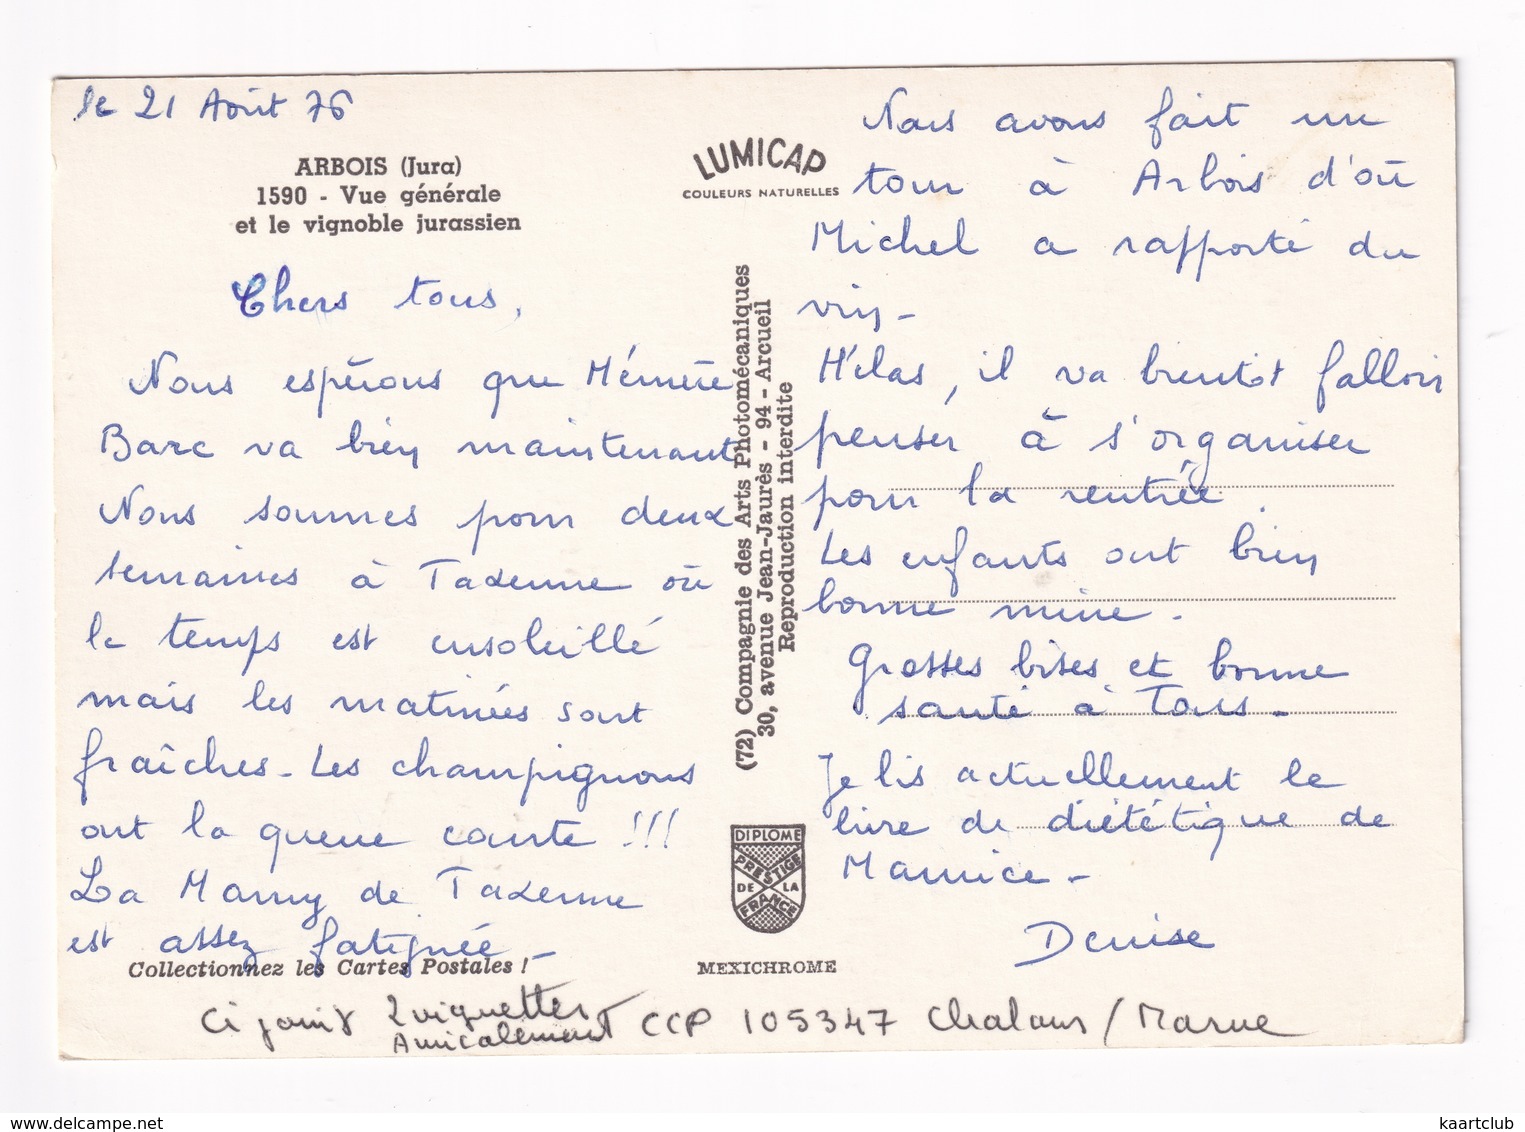 le 21 Août 76
ARBOIS (Jura)
1590 - Vue générale
et le vignoble jurassien
Chers tous,
Nous espérons que Mémère
Barc va bien maintenant
Nous sommes pour deux
semaines à Taxenne où
le temps est ensoleillé
mais les matinées sont
fraîches - Les champignons
ont la queue courte !!!
La Mamy de Taxenne
est assez fatiguée -
Collectionnez les Cartes Postales !
LUMICAP
COULEURS NATURELLES
(72) Compagnie des Arts Photomécaniques
30, avenue Jean-Jaurès - 94 - Arcueil
Reproduction interdite
DIPLOME
PRESTIGE
DE LA
FRANCE
MEXICHROME
Nous avons fait un
tour à Arbois d'où
Michel a rapporté du
vin -
Hélas, il va bientôt falloir
penser à s'organiser
pour la rentrée.
Les enfants ont bien
bonne mine -
Grosses bises et bonne
santé à Tous -
Je lis actuellement le
livre de diététique de
Maurice -
Denise
Ci joint 2 vignettes
Amicalement CCP 105347 Chalons / Marne
kaartclub